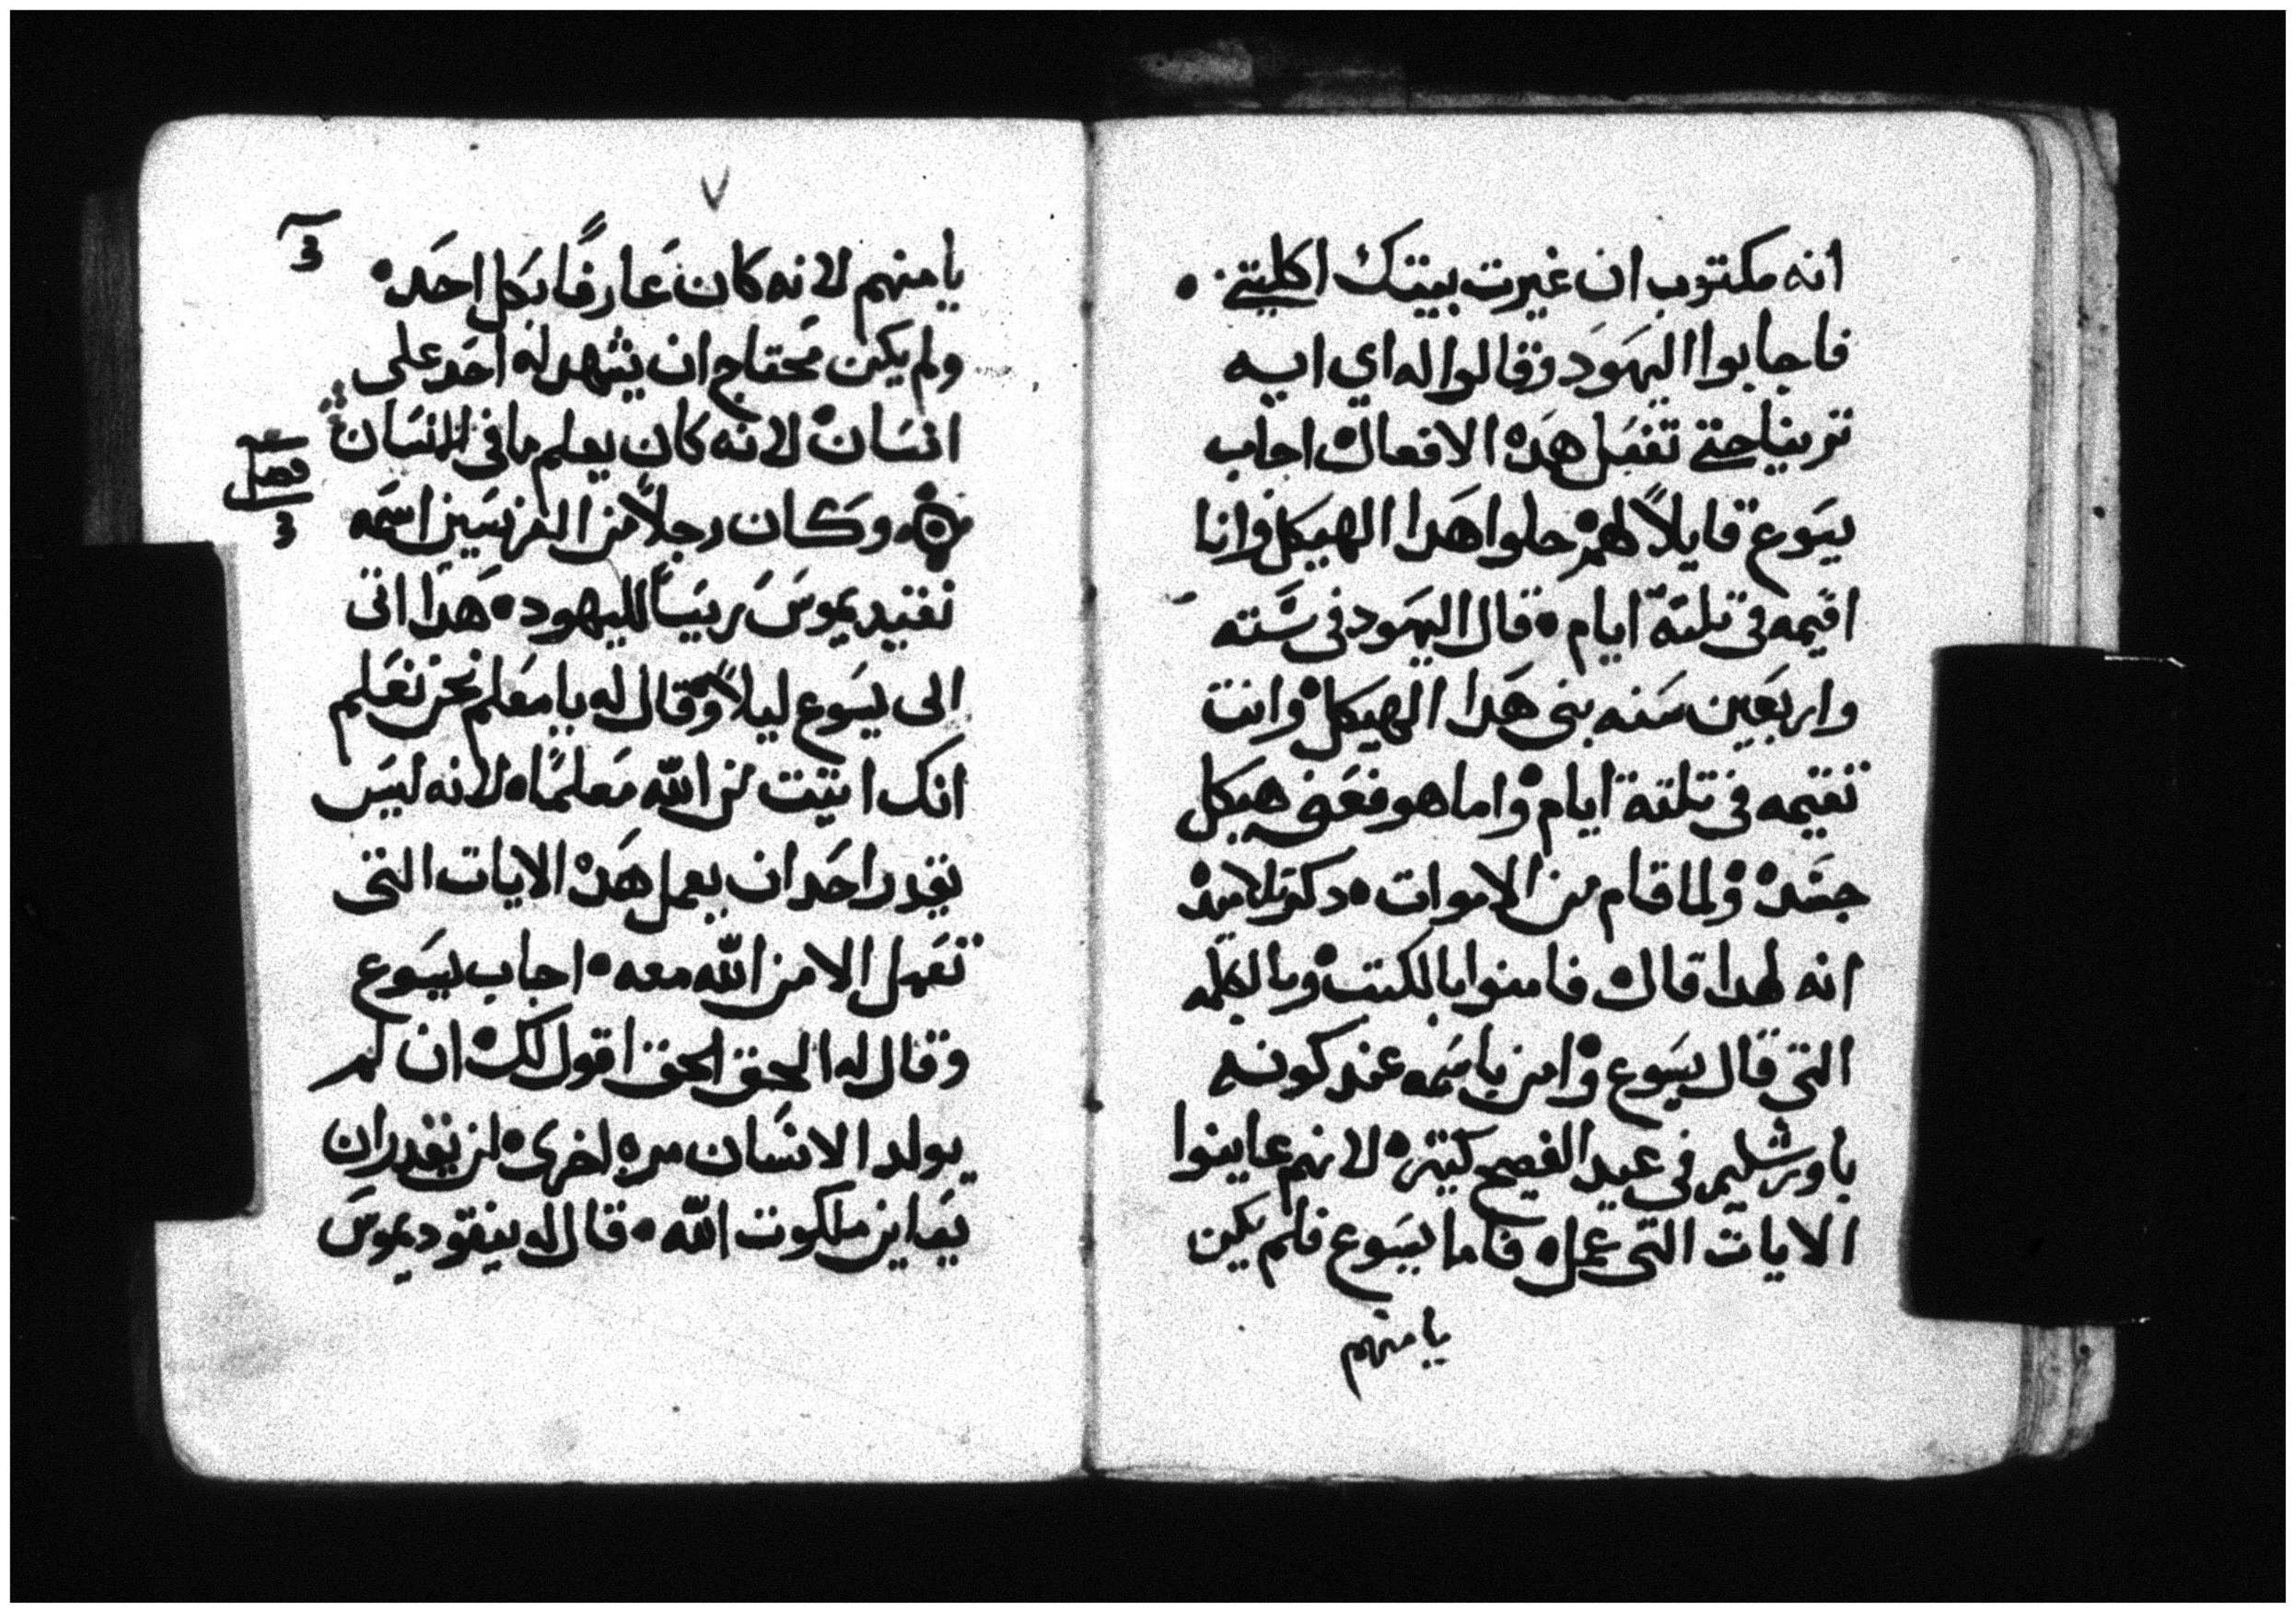 انه مكتوب ان غيرت بيتك اكلتني •
فاجابوا اليهود وقالوا له اي ايه
ترينا حتي تفعل هده الافعال اجاب
يسوع قايلاً لهم حلوا هدا الهيكل وانا
اقيمه في تلتة ايام • قال اليهود في سته
واربعين سنه بني هدا الهيكل وانت
تقيمه في تلتة ايام واما هو فعني هيكل
جسده ولما قام من الاموات • دكروا تلاميده
انه لهدا قال فامنوا بالكتب وبالكلمه
التي قال يسوع وامن باسمه عند كونه
باورشليم في عيد الفصح كتيره لانهم عاينوا
الايات التي عمله فاما يسوع فلم يكن
يامنهم
٧
يامنهم لانه كان عارفًا بكل احد •
3
ولم يكن محتاج ان يشهد له احد علي
انسان لانه كان يعلم ما في الانسان
فصل
3
وكان رجلاً من الفريسيين اسمه
نقيديموس ريسًا لليهود • هدا اتي
الى يسوع ليلاً وقال له يا معلم نحن نعلم
انك اتيت من الله معلمًا • لانه ليس
يقدر احد ان يعمل هده الايات التي
تعمل الا من الله معه • اجاب يسوع
وقال له الحق الحق اقول لك ان لم
يولد الانسان مره اخرى • لن يقدر ان
يعاين ملكوت الله • قال له نيقوديموس